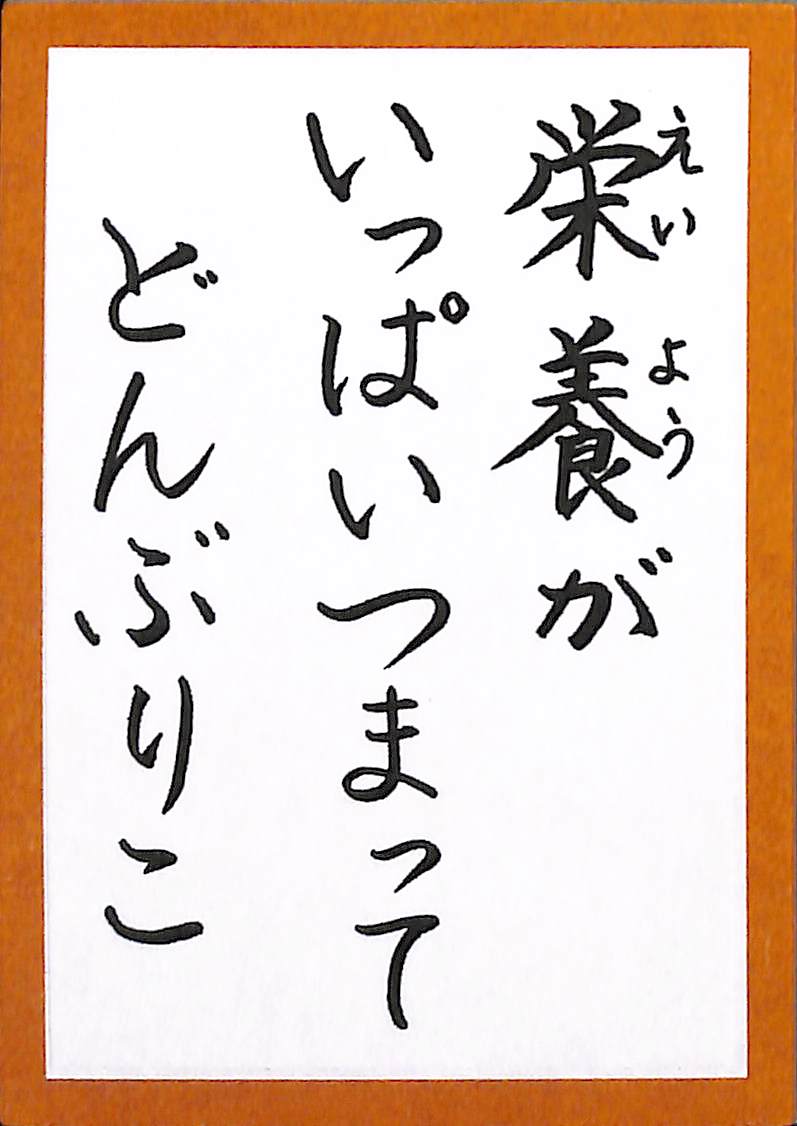 栄養が
えいよう
いっぱいつまって
どんぶりこ